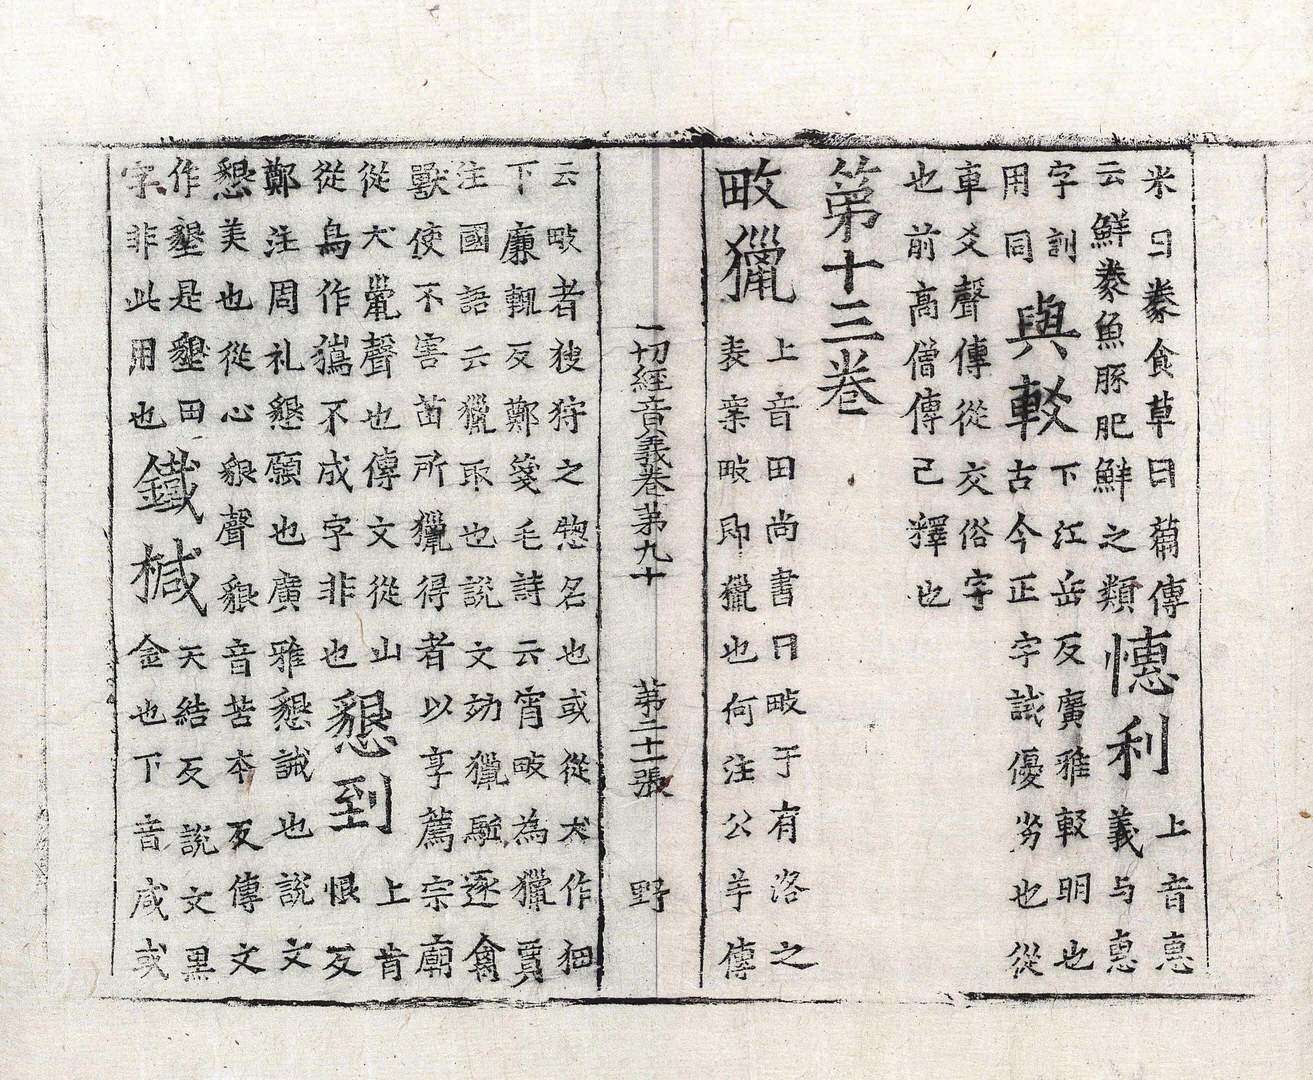 米曰豢食草曰蒭傳
云鮮豢魚豚肥鮮之類
憓利
上音惠
義与惠
字訓
用同
與較
下江岳反廣雅較明也
古今正字試優劣也從
車爻聲傳從交俗字
也前高僧傳已釋也
第十三卷
畋獵
上音田尚書曰畋于有洛之
表案畋即獵也何注公羊傳
一切經音義卷第九十 第二十一張 野
云畋者獀狩之惣名也或從犬作
下廉輒反鄭箋毛詩云宵畋為獵賈
注國語云獵取也說文効獵駈逐禽
獸使不害苗所獵得者以享薦宗廟
從犬巤聲也傳文從山
從鳥作不成字非也
懇到
上肯
恨反
鄭注周礼懇願也廣雅懇誠也說文
懇美也從心豤聲豤音苦本反傳文
作墾是墾田
字非此用也
鐵椷
天結反說文黑
金也下音咸或